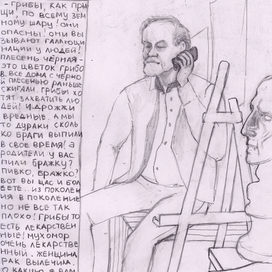 - ГРИБЫ, КАК ПРЫ
ЩИ, ПО ВСЕМУ ЗЕМ
НОМУ ШАРУ! ОНИ
ОПАСНЫ! ОНИ ВЫ
ЗЫВАЮТ ГАЛЛЮЦИ
НАЦИИ У ЛЮДЕЙ!
ПЛЕСЕНЬ ЧЁРНАЯ -
ЭТО ЦВЕТОК ГРИБО
В. ВСЕ ДОМА С ЧЁРНО
Й ПЛЕСЕНЬЮ РАНЬШЕ
СЖИГАЛИ. ГРИБЫ ХО
ТЯТ ЗАХВАТИТЬ ЛЮ
ДЕЙ! И ДРОЖЖИ
ВРЕДНЫЕ, А МЫ
ТО ДУРАКИ СКОЛЬ
КО БРАГИ ВЫПИЛИ
В СВОЕ ВРЕМЯ! А
РОДИТЕЛИ У ВАС
ПИЛИ БРАЖКУ?
ПИВКО, БРАЖКО?
ВОТ ВЫ ВАС И БОЛ
ЕЕТЕ. ИЗ ПОКОЛЕН
ИЯ В ПОКОЛЕНИЕ
НО НЕ ВСЕ ТАК
ПЛОХО! ГРИБЫ ТО
ЕСТЬ ЛЕКАРСТВЕН
НЫЕ! МУХОМОР
ОЧЕНЬ ЛЕКАРСТВЕ
ННЫЙ. ЖЕНЩИНА
РАК ВЫЛЕЧИЛ.